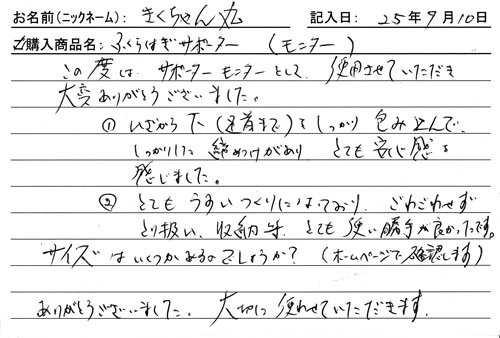 お名前(ニックネーム): きくちゃん丸 記入日: 25年9月10日
ご購入商品名: ふくらはぎサポーター (モニター)
この度は、サポーターモニターとして、使用させていただき
大変ありがとうございました。
① ひざから下(足首まで)をしっかり包み込んで、
しっかりした締めつけがあり とても安心感を
感じました。
② とてもうすいつくりになっており、ごわごわせず
とり扱い、収納 等、とても使い勝手が良かったです。
サイズはいくつかあるのでしょうか? (ホームページで確認します)
ありがとうございました。大切に使わせていただきます。